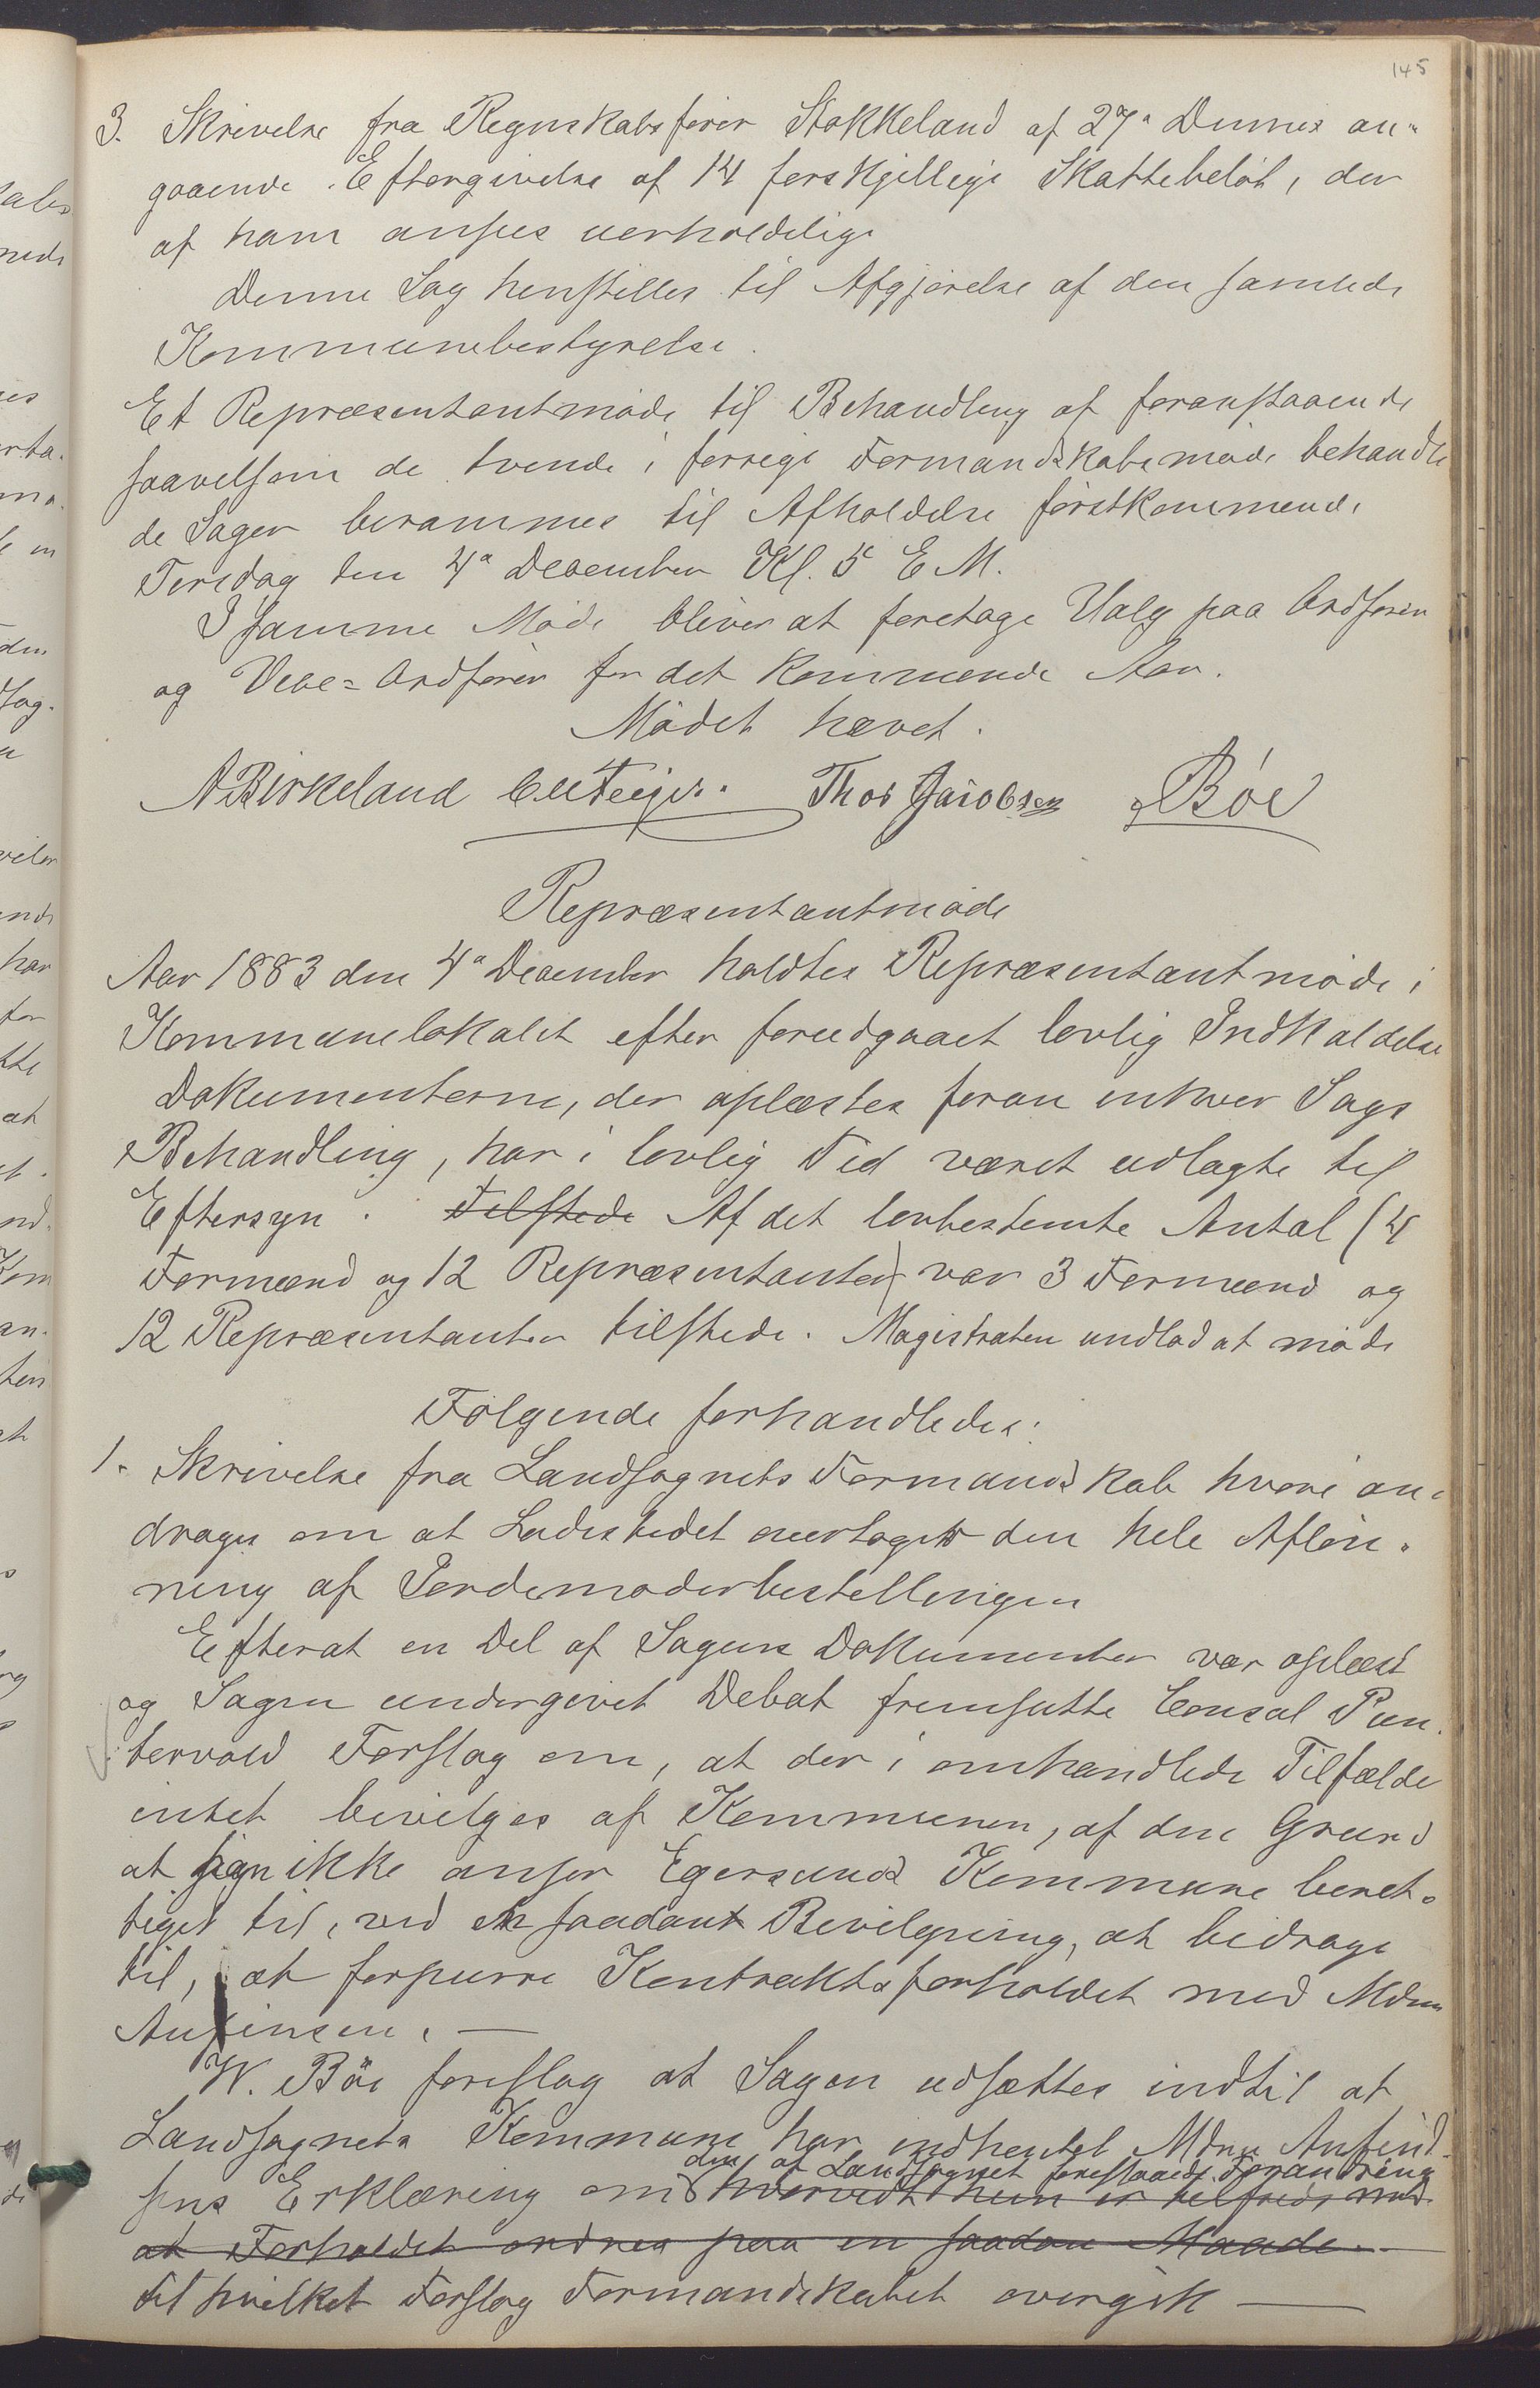 145
3. Skrivelse fra Regnskabsfører Stokkeland af 27de Dennes an-
gaaende Eftergivelse af 14 forskjellige Skattebeløb, der
af ham ansees uerholdelige
Denne Sag henstilles til Afgjørelse af den samlede
Kommunebestyrelse.
Et Repræsentantmøde til Behandling af foranstaaende
saavelsom de tvende i forrige Formandskabsmøde behandle
de Sager berammes til Afholdelse førstkommende
Tirsdag den 4de December Kl. 5 E M.
I samme Møde bliver at foretage Valg paa Ordfører
og Vice-Ordfører for det kommende Aar.
Mødet hævet.
A Birkeland Thor Jacobsen Bøe
Repræsentantmøde
Aar 1883 den 4de December holdtes Repræsentantmøde i
Kommunelokalet efter forudgaaet lovlig Indkaldelse
Dokumenterne, der oplæstes foran enhver Sags
Behandling, har i lovlig Tid været udlagte til
Eftersyn. Tilstede Af det lovbestemte Antal (4
Formænd og 12 Repræsentanter) var 3 Formænd og
12 Repræsentanter tilstede. Magistraten undlod at møde
Følgende forhandledes:
1. Skrivelse fra Landsognets Formandskab hvori an-
drages om at Ladestedet overtager den hele Afløn-
ning af Jordemoderbestellingen
Efterat en Del af Sagens Dokumenter var oplæst
og Sagen undergivet Debat fremsatte Consul Pun-
tervold Forslag om, at der i omhandlede Tilfælde
intet bevilges af Kommunen, af den Grund
at han ikke anser Egersunds Kommune beret-
tiget til, ved en saadant Bevilgning, at bidrage
til, at forpurre Kontraktsforholdet med Mdm
Anfinsen. —
W. Bøe foreslog at Sagen udsættes indtil at
Landsognets Kommune har indhentet Mdm Anfind-
den af Landsognet foreslaaede Forandring
sens Erklæring om hvorvidt hun er tilfreds med
at Forholdet ordnes paa en saadan Maade.
til hvilket Forslag Formandskabet overgik —